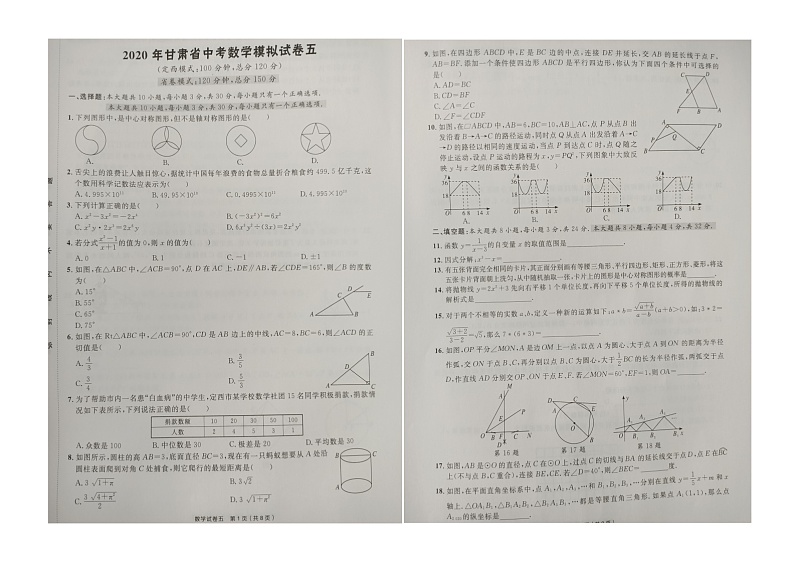 2020 年甘肃省中考数学模拟试卷五
(定西模式:100 分钟,总分 120 分)
省卷模式:120 分钟,总分 150 分
一、选择题:本大题共 10 小题,每小题 3 分,共 30 分,每小题只有一个正确选项.
本大题共 10 小题,每小题 3 分,共 30 分,每小题只有一个正确选项.
1. 下列图形中,是中心对称图形,但不是轴对称图形的是( )
A. B. C. D.
2. 舌尖上的浪费让人触目惊心,据统计中国每年浪费的食物总量折合粮食约 499.5 亿千克,这
个数用科学记数法应表示为( )
3. 下列计算正确的是( )
A. x²−3x²=−2x⁴ B. (−3x²)²=6x²
C. x²y·2x³=2x⁶y D. 6x³y²÷(3x)=2x²y²
4. 若分式 x²−1/x+1 的值为 0,则 x 的值为( )
A. 0 B. 1 C. −1 D. ±1
5. 如图,在△ABC 中,∠ACB=90°,点 D 在 AC 上,DE∥AB,若∠CDE=165°,则∠B 的度数
为( )
A. 15°
B. 55°
C. 65°
D. 75°
6. 如图,在 Rt△ABC 中,∠ACB=90°,CD 是 AB 边上的中线,AC=8,BC=6,则∠ACD 的正
切值是( )
A. 4/3 B. 3/5
C. 3/4 D. 4/5
7. 为了帮助市内一名患“白血病”的中学生,定西市某学校数学社团 15 名同学积极捐款,捐款情
况如下表所示,下列说法正确的是( )
捐款数额 10 20 30 50 100
人数 2 4 5 3 1
A. 众数是 100 B. 中位数是 30 C. 极差是 20 D. 平均数是 30
8. 如图所示,圆柱的高 AB=3,底面直径 BC=3,现在有一只蚂蚁想要从 A 处沿
圆柱表面爬到对角 C 处捕食,则它爬行的最短距离是( )
A. 3√1+π B. 3√2
C. 3√4+π²/2 D. 3√1+π²
数学试卷五 第 1 页(共 8 页)
9. 如图,在四边形 ABCD 中,E 是 BC 边的中点,连接 DE 并延长,交 AB 的延长线于点 F,
AB=BF. 添加一个条件使四边形 ABCD 是平行四边形,你认为下面四个条件中可选择的
是( )
A. AD=BC
B. CD=BF
C. ∠A=∠C
D. ∠F=∠CDF
10. 如图,在▱ABCD 中,AB=6,BC=10,AB⊥AC,点 P 从点 B 出
发沿着 B→A→C 的路径运动,同时点 Q 从点 A 出发沿着 A→C
→D 的路径以相同的速度运动,当点 P 到达点 C 时,点 Q 随之
停止运动,设点 P 运动的路程为 x,y=PQ²,下列图象中大致反
映 y 与 x 之间的函数关系的是( )
A. B. C. D.
二、填空题:本大题共 8 小题,每小题 3 分,共 24 分. 本大题共 8 小题,每小题 4 分,共 32 分.
12. 因式分解:x³−x=
13. 有五张背面完全相同的卡片,其正面分别画有等腰三角形、平行四边形、矩形、正方形、菱形,将这
五张卡片背面朝上洗匀,从中随机抽取一张,卡片上的图形是中心对称图形的概率是
14. 将抛物线 y=2x²+3 先向右平移 1 个单位长度,再向下平移 5 个单位长度,所得的抛物线的
解析式是
15. 对于两个不相等的实数 a,b,定义一种新的运算如下:a*b=√a+b/a−b (a+b>0),如:3*2=
√3+2/3−2=√5,那么 7*(6*3)=
16. 如图,OP 平分∠MON,A 是边 OM 上一点,以点 A 为圆心、大于点 A 到 ON 的距离为半径
作弧,交 ON 于点 B、C,再分别以点 B、C 为圆心,大于 1/2 BC 的长为半径作弧,两弧交于点
D,作直线 AD 分别交 OP、ON 于点 E、F. 若∠MON=60°,EF=1,则 OA=
第 16 题 第 17 题 第 18 题
17. 如图,AB 是⊙O 的直径,点 C 在⊙O 上,过点 C 的切线与 BA 的延长线交于点 D,点 E 在BC
上(不与点 B,C 重合),连接 BE,CE. 若∠D=40°,则∠BEC= 度.
18. 如图,在平面直角坐标系中,点 A₁,A₂,A₃,…和 B₁,B₂,B₃,…分别在直线 y=1/5x+m 和 x
轴上. △OA₁B₁,△B₁A₂B₂,△B₂A₃B₃,…都是等腰直角三角形. 如果点 A₁(1,1),那么点